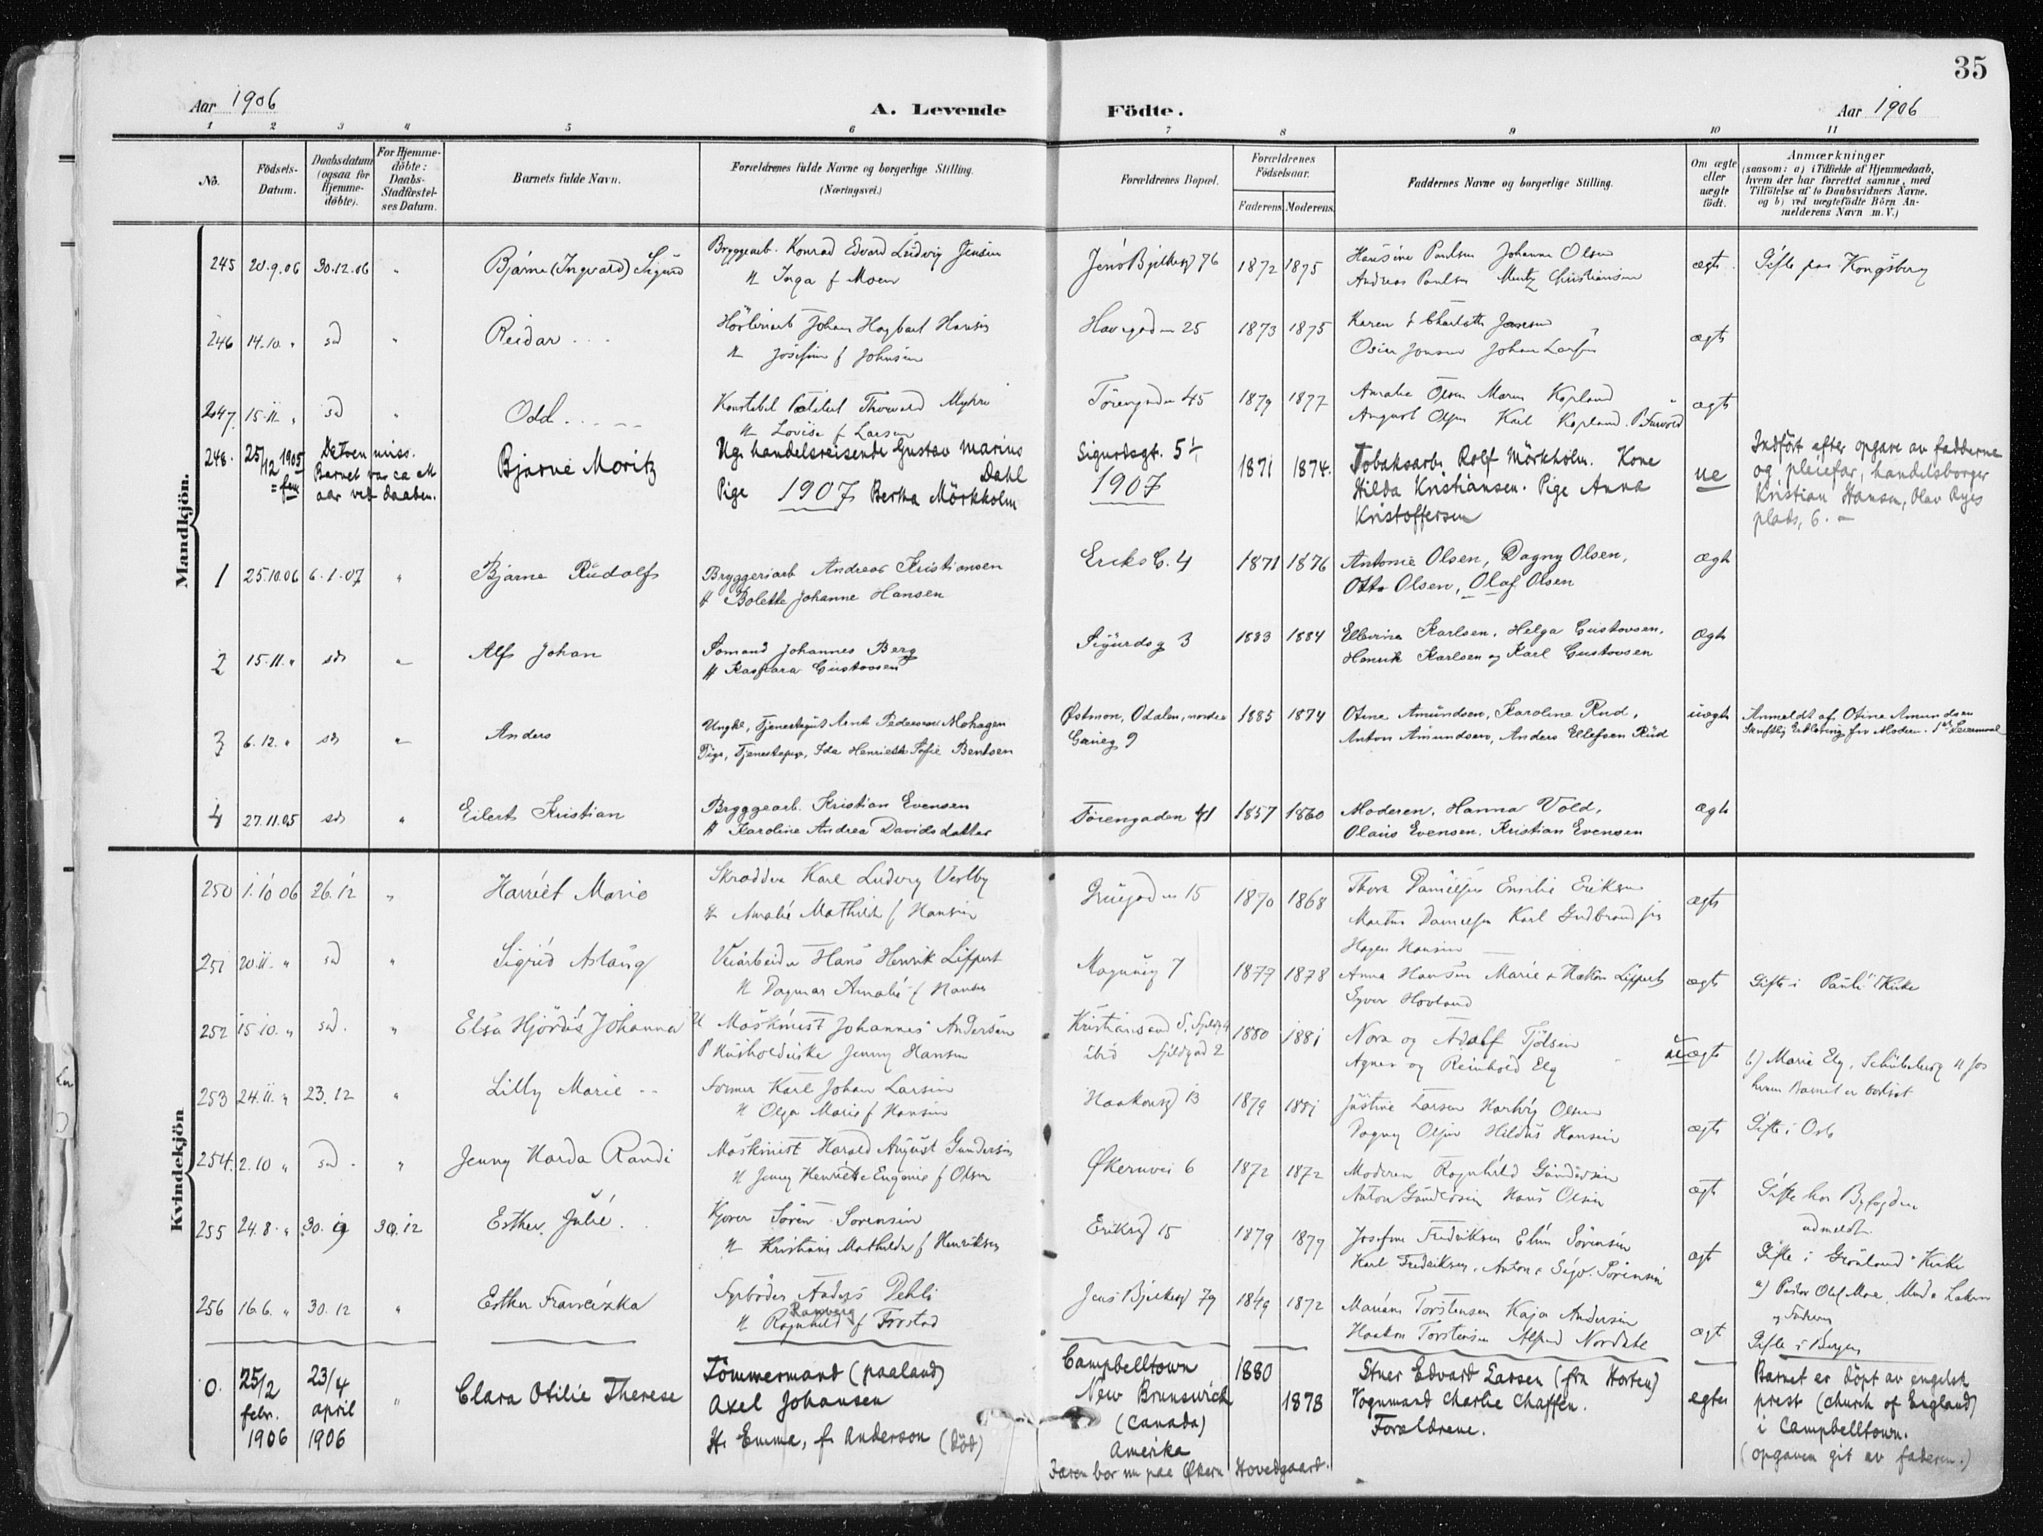 35
Aar 1906 A. Levende Födte. Aar 1906
1 2 3 4 5 6 7 8 9 10 11
No. Födsels-Datum. Daabsdatum (ogsaa for Hjemme-döbte). For Hjemme-döbte: Daabs-Stadfæstel-ses Datum. Barnets fulde Navn. Forældrenes fulde Navne og borgerlige Stilling. (Næringsvei.) Forældrenes Bopæl. Forældrenes Födselsaar. Faderens. Moderens. Faddernes Navne og borgerlige Stilling. Om ægte eller uægte födt. Anmærkninger (saasom: a) i Tilfælde af Hjemmedaab, hvem der har forrettet samme, med Tilföielse af to Daabsvidners Navne, og b) ved uægtefödte Börn An-melderens Navn m. V.)
Mandkjön.
245 20.9.06 30.12.06 " Bjarne (Ingvard) Sigurd Bryggearb. Konrad Edvard Ludvig Jensen Jens Bjelkesg 76 1872 1875 Hansine Paulsen Johanne Olsen ægte Gifte paa Kongsberg
H Inga f Moen Andreas Paulsen Mentz Christiansen
246 14.10. " sd " Reidar Johan Hagbart Hansen Havegaden 25 1873 1875 Karen & Charlotte Jansen ægte
H Josefine f Johnsen Johan Larsen
247. 15.11. " sd " Odd Konstabel Thorvald Myhre Töiengaden 45 1879 1877 Amalie Olsen Maren Kopland ægte
H Lovise f Larsen August Olsen Karl Kopland
248. 25/12 1905 Barnet var ca et aar ved daaben. Bjarne Moritz Ug. handelsreisende Gustav Marius Dahl Sigurdsgt. 5 1871 1874. Tobaksarb. Rolf Mörkholm. Kone ue Indfört efter opgave av fadderne
Pige Bertha Mörkholm Hilda Kristiansen. Pige Anna og pleiefar, handelsborger
Kristoffersen Kristian Hansen, Olav Ryes
plads, 6.
1907 1907
1 25.10.06 6.1.07 " Bjarne Rudolf Bryggeriarb Andreas Kristiansen Eriks G. 4 1871 1876 Antonie Olsen, Dagny Olsen, ægte
H Bolette Johanne Hansen Otto Olsen, Olaf Olsen
2 15.11. " sds " Alf Johan Sömand Johannes Berg Sigurdsg 3 1883 1884 Ellevine Karlsen, Helga Gustavsen, ægte
H Kaspara Gustavsen Henrik Karlsen og Karl Gustavsen
3 6.12. " sds " Anders Ungkl, Tjenestegut Arnt Pedersen Mohagen Østmon, Odalen, nordre 1885 1874 Otine Amundsen, Karoline Rud, uægte Anmeldt af Otine Amundsen
Pige, Tjenestepige, Ida Henriette Sofie Bentsen Grüneg 9 Anton Amundsen, Anders Ellefsen Rud Skriftlig Erklæring fra Moderen. 1ste Leiermaal
4 27.11.05 sds " Eilert Kristian Bryggearb. Kristian Evensen Töiengaden 41 1857 1860 Moderen, Hanna Vold, ægte
H Karoline Andrea Davidsdatter Olaus Evensen, Kristian Evensen
Kvindekjön
250 1.10 06 26.12 " Harriet Marie Skrædder Karl Ludvig Grüegaden 15 1870 1868 Thora Danielsen Emilie Eriksen ægte
H Amalie Mathilde f Hansen Martin Danielsen Karl Gudbrandsen
Hagen Hansen
251 20.11. " sd " Sigrid Aslaug Veiarbeider Hans Henrik Lippert Magnusg 7 1877 1878 Anna Hansen Marie & Hakon Lippert ægte Gifte i Pauli Kirke
H Dagmar Amalie f Hansen Syver Hovland
252 15.10. " sd. " Elsa Hjördis Johanna U Maskinist Johannes Andersen Kristiansand S. 1880 1881 Nora og Adolf Tjölsen uægte
P Husholderske Jenny Hansen ibid 2 Agnes og Reinhold Elg b) Marie Elg,
hvem Barnet er bortsat
253 24.11. " 23.12 " Lilly Marie Former Karl Johan Larsen Haakonsg 13 1879 1881 Justine Larsen Hartvig Olsen ægte Gifte i Oslo
H Olga Marie f Hansen Dagny Olsen Hansen
254. 2.10 " sd. " Jenny Harda Randi Maskinist Harald August Gundersen Økernvei 6 1872 1872 Moderen Ragnhild Gundersen ægt Gifte hos Byfogden
H Jenny Henriette Eugenie f Olsen Anton Gundersen Hans Olsen udmeldt
255 24.8 " 30.19 30.12 Esther Julie. Kjörer Sören Sorensen Eriksg 15 1879 1879 Josefine Fredriksen Elin Sörensen ægt Gifte i Grönland Kirke
H Kristiane Mathilde f Henriksen Karl Fredriksen, Anton & Sörensen a) Pastor Olaf Moe,
256 16.6. " 30.12 " Esther Franciska Fyrböder Anders Dehli Jens Bjelkesg 79 1849 1872 Torstensen Kaja Andersen ægt Gifte i Bergen
H Ragnhild Ranveig f Forstad Haakon Torstensen Alfred Nordahl
0. 25/2 febr. 1906 23/4 april 1906 " Clara Otilie Therese Tömmermand (paaland) Campbelltown 1880 1878 Stuer Edvard Larsen (fra Horten) egte Barnet er döpt av engelsk
Axel Johansen New Brunswick Vognmand Charlie Chaffen. prest (church of England)
H. Emma, f. Anderson (död) (Canada) Forældrene. i Campbelltown.
Amerika (opgaven git av faderen.)
Faren bor nu paa Økern Hovedgaard.